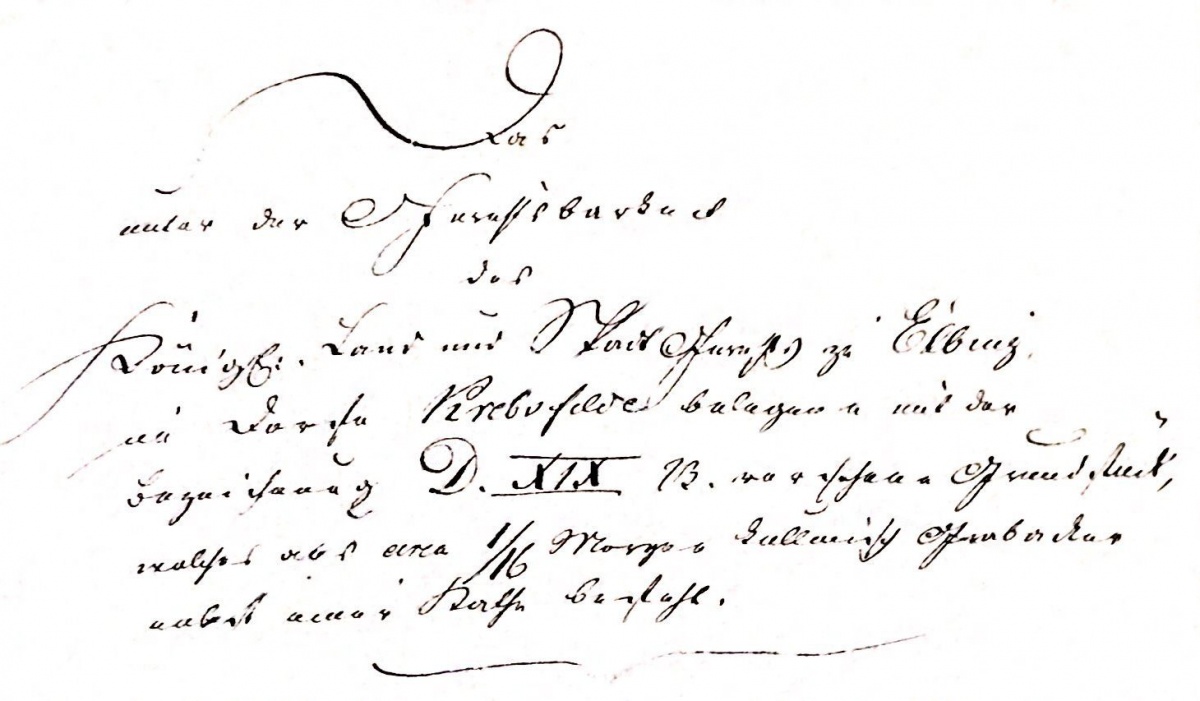 Das
unter der Gerichtsbarkeit
des
Königl. Land und Stadt Gerichts zu Elbing,
im Dorfe Krebsfelde belegene mit der
Bezeichnung D. XIX B. versehene Grundstück,
welches aus circa 1/16 Morgen kullmisch Grabacker
nebst einer Kathe besteht.